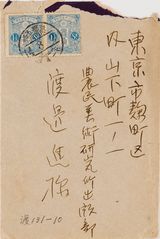 東京市麹町区
内山下町一ノ一
農民美術研究所出版部
渡邊進様
渡131-10